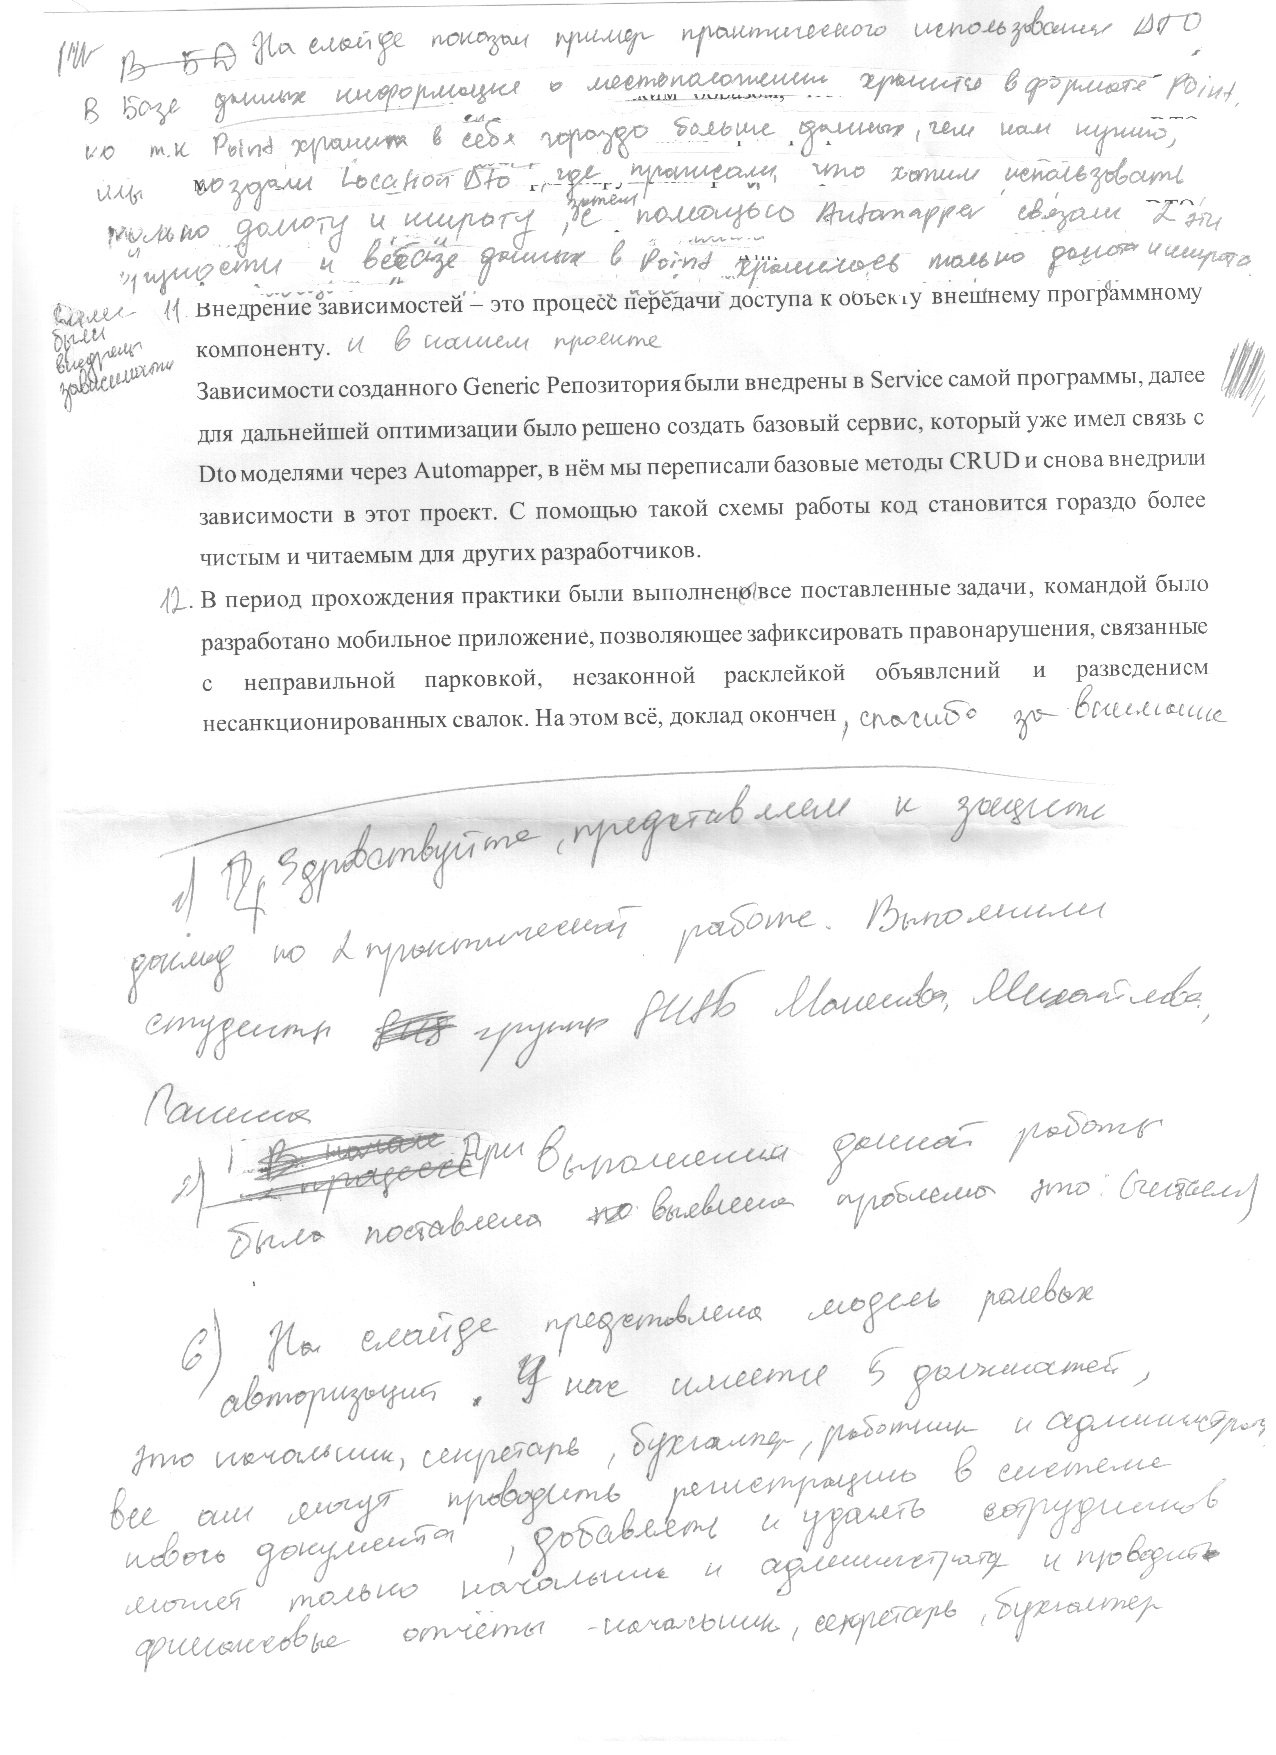 ~~В БД~~ На слайде показан пример практического использования DTO
В Базе данных информация о местоположении хранится в формате Point,
но т.к Point хранит в себя гораздо больше данных, чем нам нужно,
мы создали Location Dto, где прописали, что хотим использовать
только долготу и широту, затем с помощью Automapper связали 2 эти
сущности и в базе данных в Point хранилось только долгота и широта
Далее были внедрены зависимости
11. Внедрение зависимостей – это процесс передачи доступа к объекту внешнему программному
компоненту. и в нашем проекте
Зависимости созданного Generic Репозитория были внедрены в Service самой программы, далее
для дальнейшей оптимизации было решено создать базовый сервис, который уже имел связь с
Dto моделями через Automapper, в нём мы переписали базовые методы CRUD и снова внедрили
зависимости в этот проект. С помощью такой схемы работы код становится гораздо более
чистым и читаемым для других разработчиков.
12. В период прохождения практики были выполнены все поставленные задачи, командой было
разработано мобильное приложение, позволяющее зафиксировать правонарушения, связанные
с неправильной парковкой, незаконной расклейкой объявлений и разведением
несанкционированных свалок. На этом всё, доклад окончен, спасибо за внимание
1) Здравствуйте, представляем к защите
доклад по 2 практической работе. Выполнили
студенты группы Михайлова,
Панина
2) ~~В начале~~ ~~процесс~~ При выполнении данной работы
была поставлена выявлена проблема это: (читаем)
6) На слайде представлена модель ролевых
авторизаций. У нас имеется 5 должностей,
это начальник, секретарь, бухгалтер, работник и администратор
все они могут проводить регистрацию в системе
нового документа, добавлять и удалять сотрудников
может только начальник и администратор и проводить
финансовые отчёты - начальник, секретарь, бухгалтер